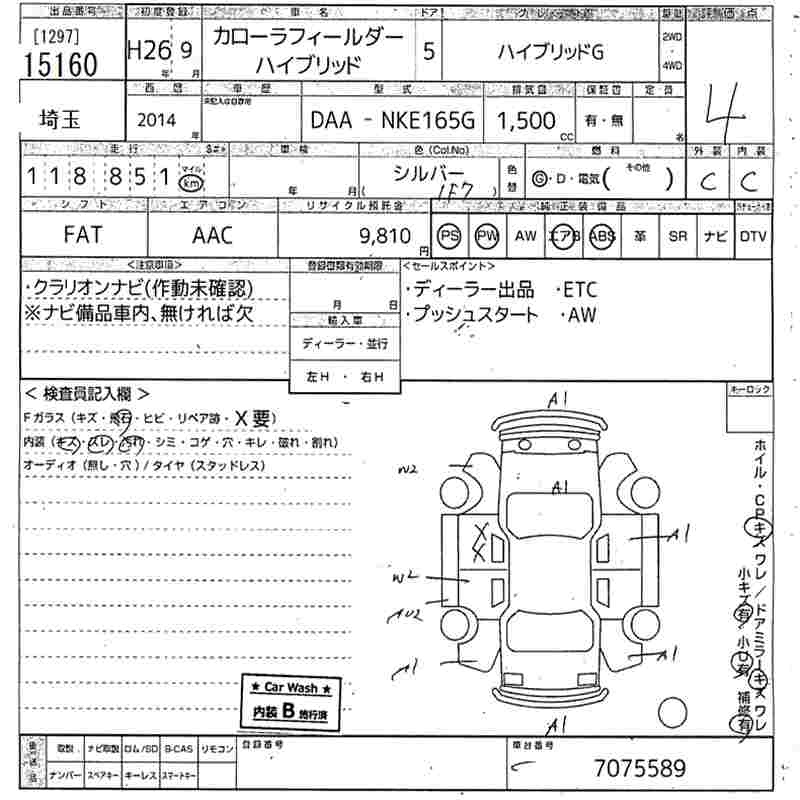 出品番号 初度登録 車名 ドア グレード 駆動 評価点
[1297]
15160 H26年 9月 カローラフィールダー
ハイブリッド 5 ハイブリッドG 2WD・4WD 4
西暦 車歴 型式 排気量 保証書 定員
埼玉 2014年 DAA - NKE165G 1,500cc 有・無 名
走行 車検 色(Col.No) 燃料 外装 内装
118851 マイル km 年 月 シルバー (1F7) 色替 G・D・電気(その他) C C
シフト エアコン リサイクル預託金 純正装備品
FAT AAC 9,810円 PS PW AW エアB ABS 革 SR ナビ DTV
<注意事項> 登録書類有効期限 <セールスポイント>
・クラリオンナビ(作動未確認) 月 日 ・ディーラー出品 ・ETC
※ナビ備品車内、無ければ欠 ・プッシュスタート ・AW
輸入車
ディーラー・並行
左H ・ 右H
< 検査員記入欄 > キーロック
Fガラス (キズ・飛石・ヒビ・リペア跡・X要)
内装 (キズ・スレ・汚れ・シミ・コゲ・穴・キレ・破れ・割れ)
オーディオ (無し・穴) / タイヤ (スタッドレス)
A1
W2
A1
X
X
A1
W2
AU2
A1
A1
A1
ホイル・CPキズ ワレ/ドアミラーキズ ワレ
小キズ有 小U有 補修有
★ Car Wash ★
内装 B 施行済
取説 ナビ取説 ロム/SD B-CAS リモコン 登録番号 車台番号
ナンバー スペアキー キーレス スマートキー 7075589